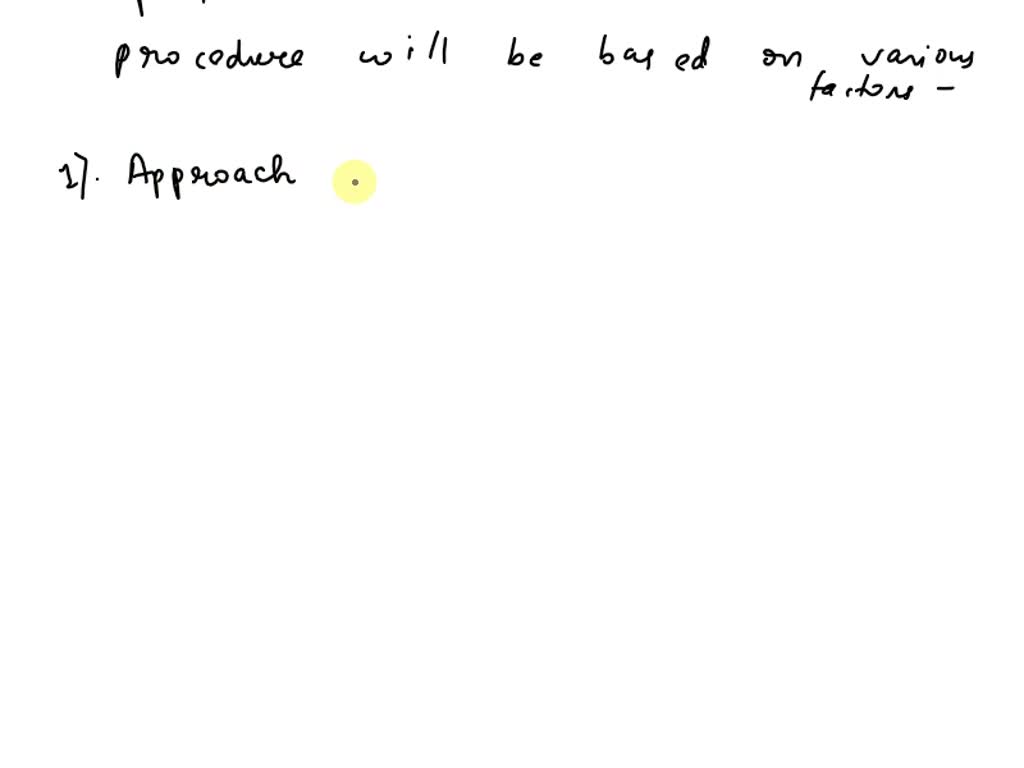 procedure will be based on various
factors -
1). Approach